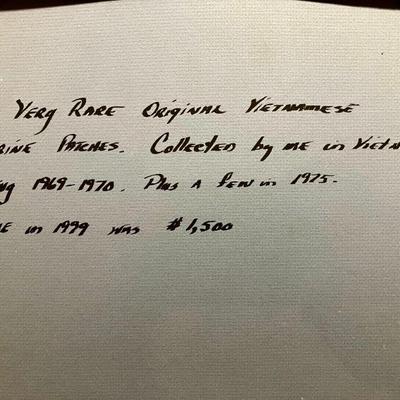 Very Rare Original Vietnamese
rine Patches. Collected by me in Vietn
ng 1969-1970. Plus a few in 1975.
e in 1999 was $1,500